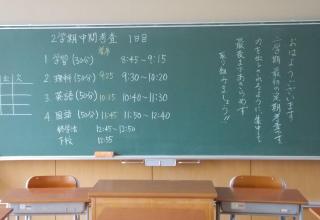 2学期中間考査 1日目
1 学習(30分) 8:45〜9:15
2 理科(50分) 9:25 9:30〜10:20
3 英語(50分) 10:35 10:40〜11:30
4 国語(50分) 11:45 11:50〜12:40
終学活 12:45〜12:50
下校 12:55
おはようございます
二学期最初の定期考査です
力を出しきれるように、集中して
最後まであきらめず
取り組みましょう!!
火
欠